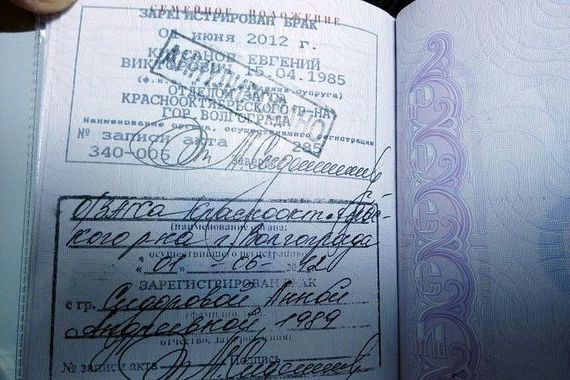 СЕМЕЙНОЕ ПОЛОЖЕНИЕ
ЗАРЕГИСТРИРОВАН БРАК
июня 2012 г.
ЕВГЕНИЙ
15.04.1985
ОТДЕЛОМ
КРАСНООКТЯБРЬСКОГО Р-НА
ГОР. ВОЛГОГРАДА
Наименование органа, осуществившего регистрацию
№ записи акта 285
340-006
О/ЗАГСа Краснооктябрь-
ского р-на г. Волгограда
(наименование органа,
осуществившего регистрацию)
« 01 » - 06 - 2012
ЗАРЕГИСТРИРОВАН БРАК
с гр. Сидоровой Анной
Андреевной, 1989
отчество, дата рождения)
№ записи акта Подпись